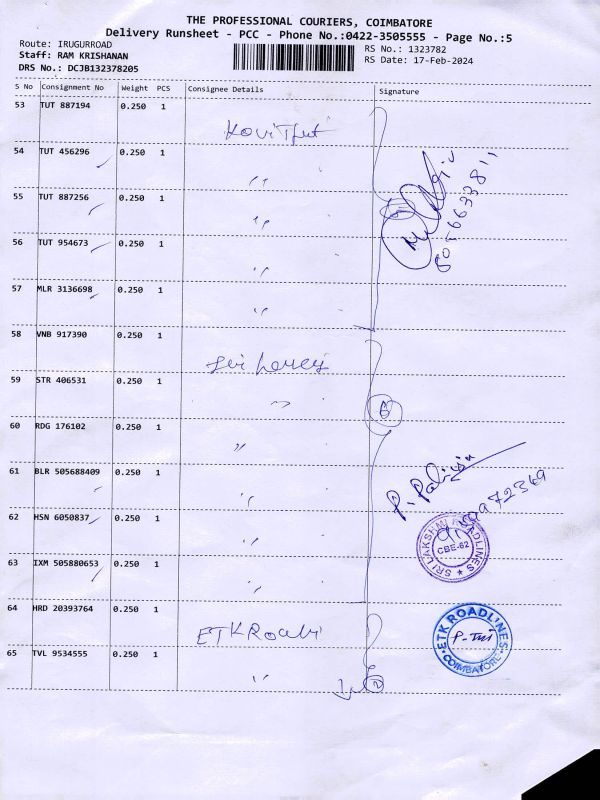 THE PROFESSIONAL COURIERS, COIMBATORE
Delivery Runsheet - PCC - Phone No.:0422-3505555 - Page No.:5
Route: IRUGURROAD
Staff: RAM KRISHANAN
DRS No.: DCJB132378205
RS No.: 1323782
RS Date: 17-Feb-2024
S No Consignment No Weight PCS Consignee Details Signature
53 TUT 887194 0.250 1
54 TUT 456296 0.250 1
55 TUT 887256 0.250 1
56 TUT 954673 0.250 1
57 MLR 3136698 0.250 1
58 VNB 917390 0.250 1
59 STR 406531 0.250 1
6
60 RDG 176102 0.250 1
61 BLR 505688409 0.250 1
62 HSN 6050837 0.250 1
SRI LAKSHMI ROADLINES
CBE-62
63 IXM 505880653 0.250 1
64 HRD 20393764 0.250 1
ETK
ETK ROADLINES
COIMBATORE
65 TVL 9534555 0.250 1
2